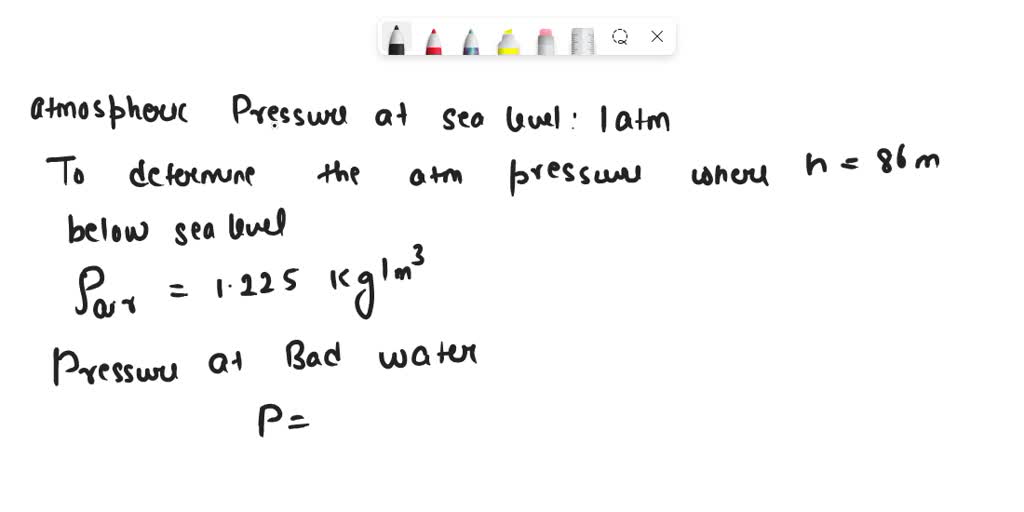 atmospheric Pressure at sea level: 1atm
To determine the atm pressure where h = 86 m
below sea level
ρair = 1.225 kg/m³
Pressure at Bad water
P=